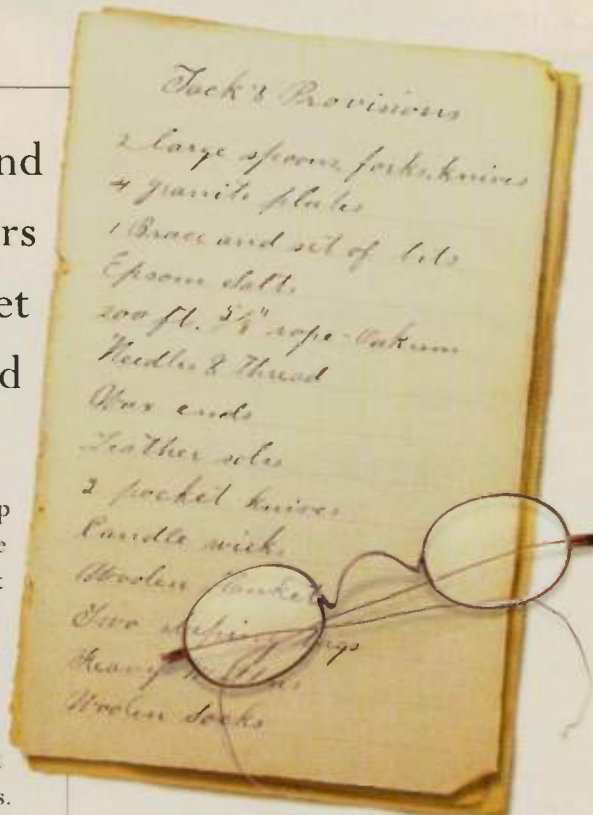 nd
rs
et
d
p
e
s.
Jack's Provisions
2 large spoons, forks, knives
4 granite plates
1 Brace and set of bits
Epsom salts
200 ft. 5/8" rope - Oakum
Needles & thread
Wax ends
Leather soles
2 pocket knives
Candle wicks
Woolen blankets
Two sleeping bags
Heavy mittens
Woolen Socks